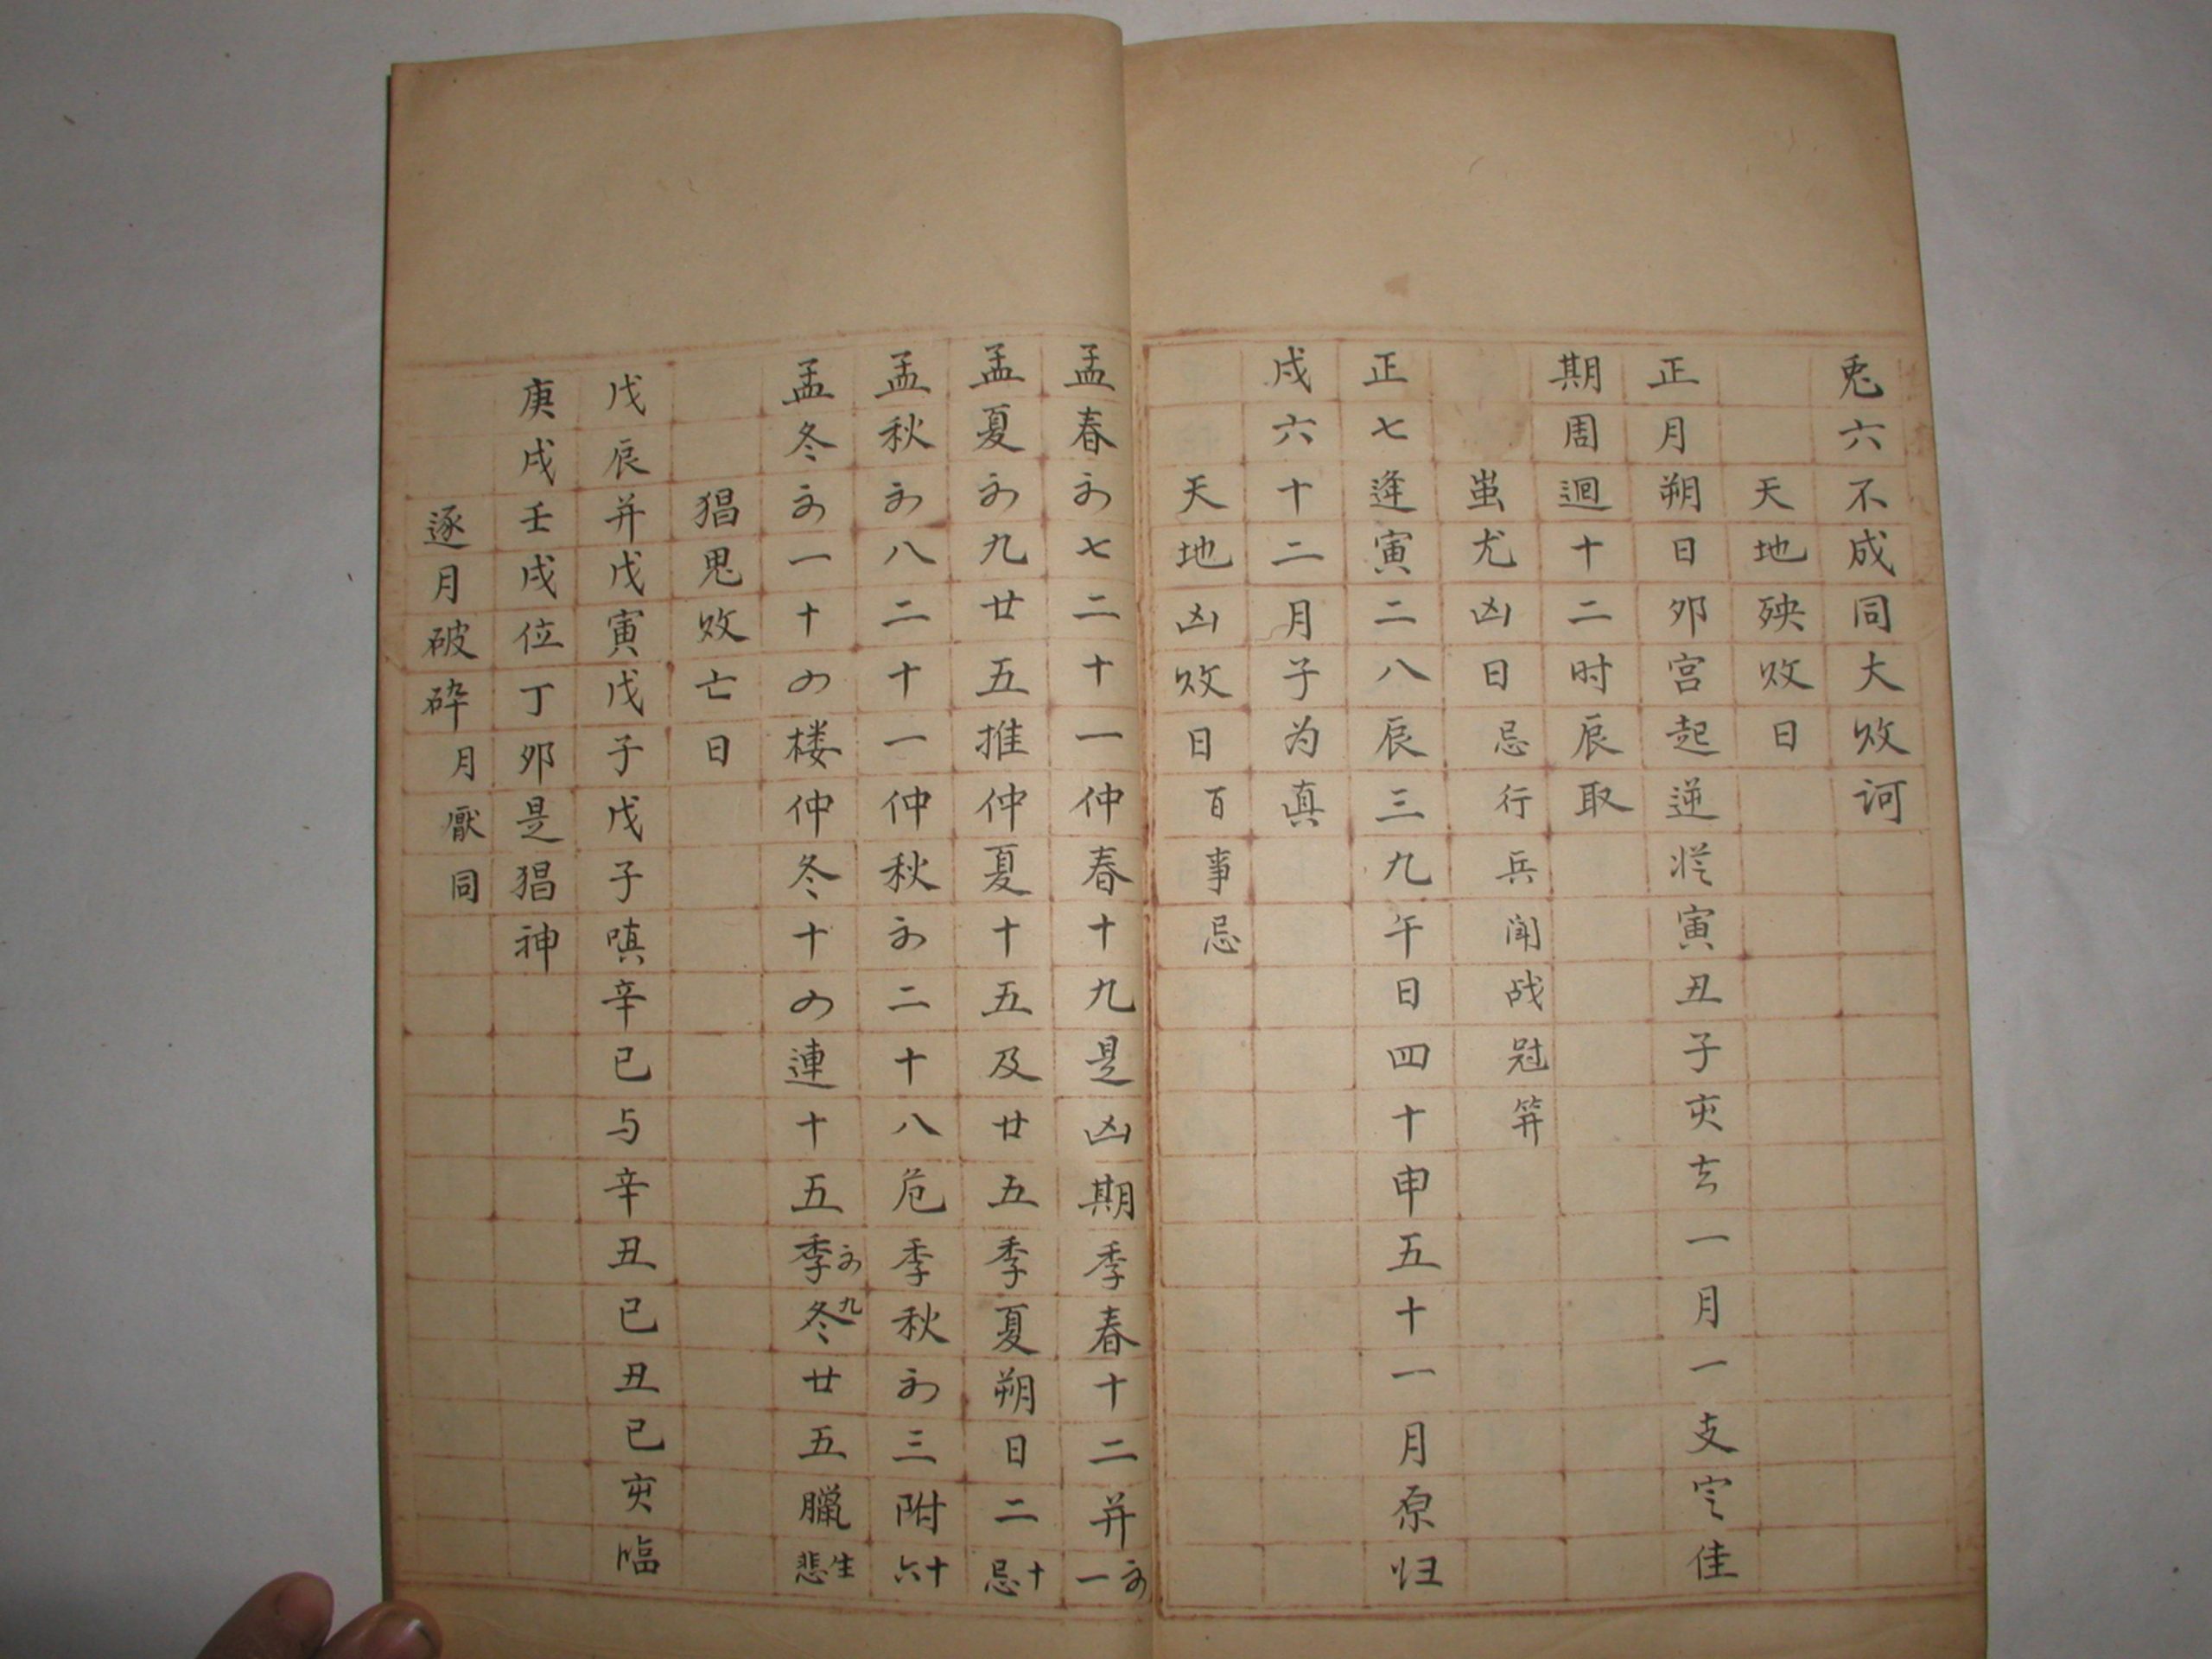 兎六不成同大败诃
天地殃败日
正月朔日卯宫起逆从寅丑子亥去一月一支定佳
期周迴十二时辰取
蚩尤凶日忌行兵闹战冠笄
正七逢寅二八辰三九午日四十申五十一月原归
戌六十二月子为真
天地凶败日百事忌
孟春初七二十一仲春十九是凶期季春十二并初一
孟夏初九廿五推仲夏十五及廿五季夏朔日二十忌
孟秋初八二十一仲秋初二十八危季秋初三附十六
孟冬初一十四楼仲冬十四連十五季冬初九廿五臘生悲
猖鬼败亡日
戊辰并戊寅戊子戊子嗔辛巳与辛丑己丑己亥临
庚戌壬戌位丁卯是猖神
逐月破碎月厭同